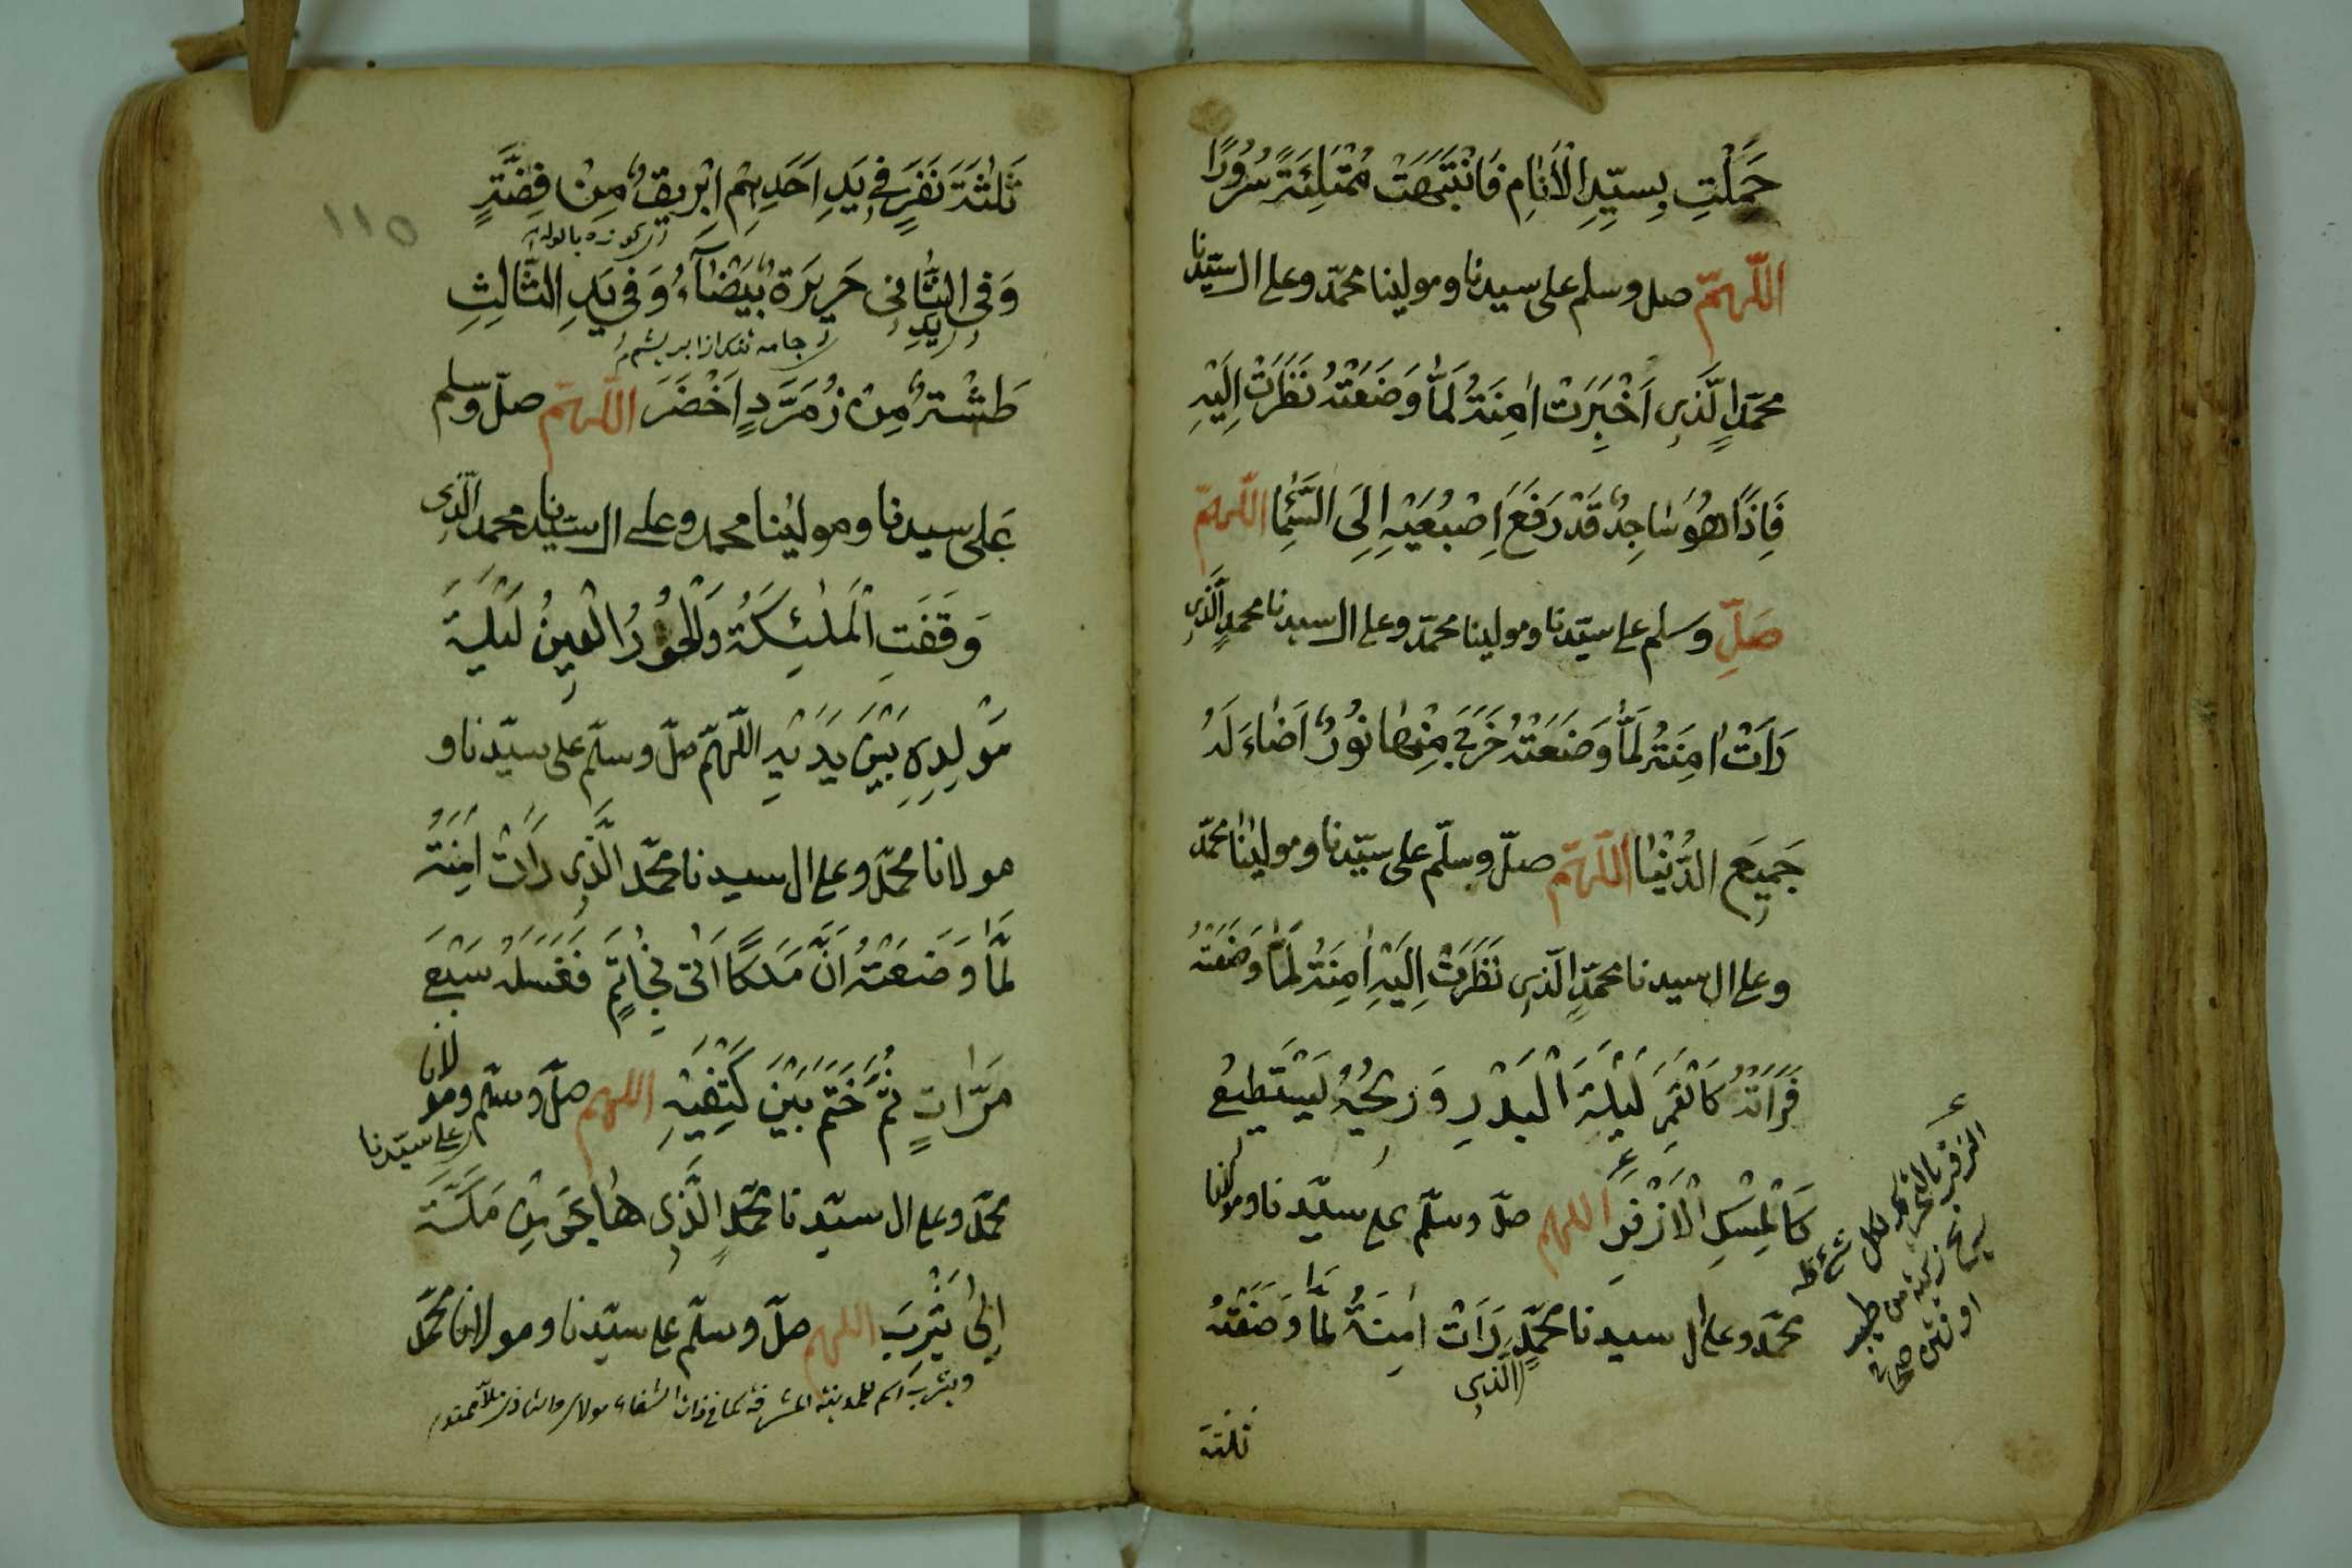 حَمَلْتِ بِسَيِّدِ الْأَنَامِ فَانْتَبَهَتْ مُمْتَلِئَةً سُرُورًا
اللّٰهمّ صل وسلم على سيدنا ومولينا محمّد وعلى ال سيّدنا
محمّدٍ الَّذِى اَخْبَرَتْ اٰمِنَةُ لَمَّا وَضَعَتْهُ نَظَرَتْ اِلَيْهِ
فَاِذَا هُوَ سَاجِدٌ قَدْ رَفَعَ اِصْبُعَيْهِ اِلَى السَّمَا اللّٰهمّ
صَلِّ وسلم على سيّدنا ومولينا محمّد وعلى ال سيدنا محمدٍ الَّذِى
رَاَتْ اٰمِنَةُ لَمَّا وَضَعَتْهُ خَرَجَ مِنْهَا نُورٌ اَضَاءَ لَهُ
جَمِيعَ الدُّنْيَا اللّٰهمّ صلّ وسلّم على سيّدنا ومولينا محمّد
وعلى ال سيدنا محمّدٍ الَّذِى نَظَرَتْ اِلَيْهِ اٰمِنَةُ لَمَّا وَضَعَتْهُ
فَرَاَتْهُ كَالْقَمَرِ لَيْلَةَ الْبَدْرِ وَرِيحُهُ يَسْتَطِيعُ
كَالْمِسْكِ الْاَزْفَرِ اللهم صلّ وسلّم على سيّدنا ومولانا
محمّد وعلى ال سيدنا محمّدٍ رَاَتْ اٰمِنَةُ لَمَّا وَضَعَتْهُ
الَّذِى
ثلثة
طيب
او نتن صحاح
ثَلٰثَةَ نَفَرٍ فِى يَدِ اَحَدِهِمْ اِبْرِيقٌ مِنْ فِضَّةٍ
١١٥
وَفِى الثَّانِى حَرِيرَةٌ بَيْضَآءُ وَفِى يَدِ الثَّالِثِ
يَدِ
طَشْتٌ مِنْ زُمَرَّدٍ اَخْضَرَ اللّٰهمّ صلّ وسلم
عَلى سيدنا ومولينا محمد وعلى ال سيّدنا محمد الَّذِى
وَقَفَتِ الْمَلٰئِكَةُ وَالْحُورُ الْعِينُ لَيْلَةَ
مَوْلِدِهِ بَيْنَ يَدَيْهِ اللّهمّ صلّ وسلّم على سيّدنا و
مولانا محمّد وعلى ال سيدنا محمّد الَّذِى رَاَتْ اٰمِنَةُ
لَمَّا وَضَعَتْهُ اَنَّ مَلَكًا اَتٰى بِخَاتِمٍ فَغَسَلَهُ سَبْعَ
مَرَّاتٍ ثُمَّ خَتَمَ بَيْنَ كَتِفَيْهِ اللهم صلّ وسلّم ومولانا
على سيّدنا
محمّد وعلى ال سيّدنا محمّدٍ الَّذِى هَاجَرَ مِنْ مَكَّةَ
اِلٰى يَثْرِبَ اللهم صلّ وسلّم على سيّدنا ومولانا محمّد
ويثرب اسم للمدينة المشرفة كما فى